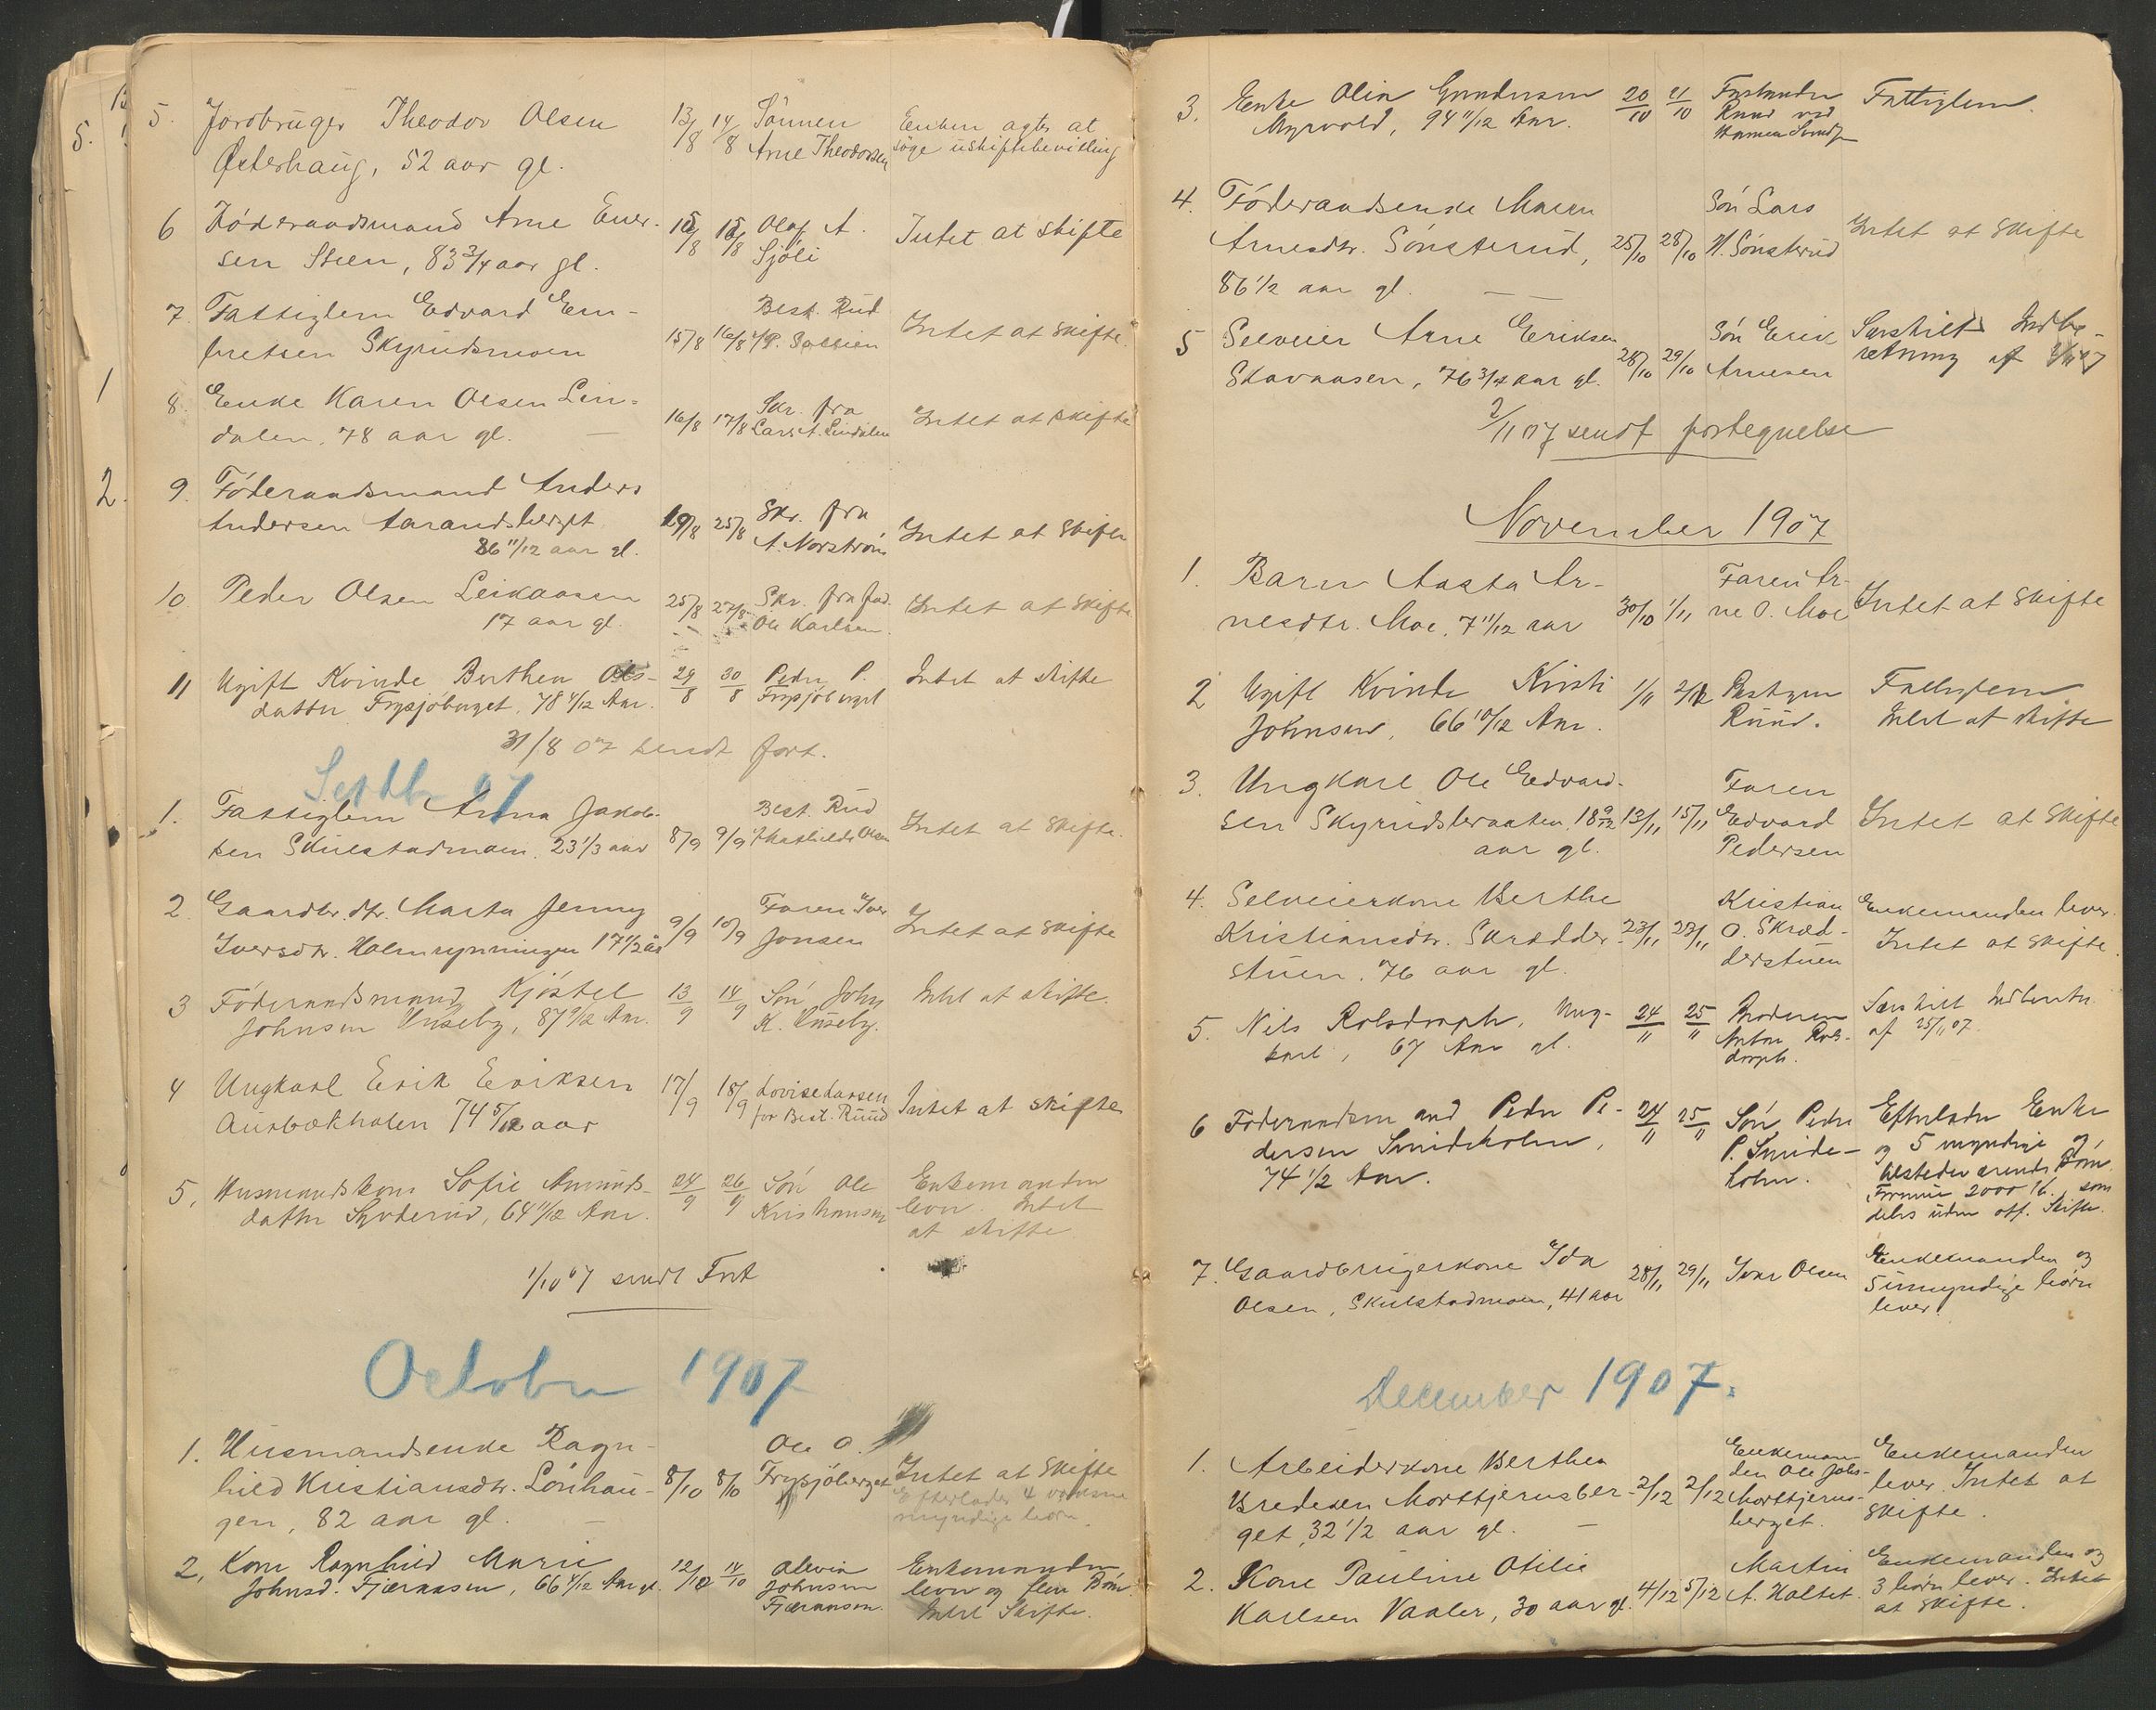 5. Jordbruger Theodor Olsen 13/8 14/8 Sönnen Enken agter at
Österhaug, 52 aar gl. Arne Theodorsen söge uskiftebevilling
6 Föderaadsmand Arne Ener- 15/8 15/8 Olaf A. Intet at skifte
sen Steen, 83 3/4 aar gl. Sjöli
7. Fattiglem Edvard Em- Best. Rud
bretsen Skyrudsmoen 15/8 16/8 Intet at skifte.
8. Enke Karen Olsen Lin- Skr. fra
dalen, 78 aar gl. — 16/8 17/8 Lars A. Lindalen Intet at skifte
9. Föderaadsmand Anders
Andersen Aarandsberget 19/8 25/8 Skr. fra Intet at skifte
86 11/12 aar gl. A. Norström
10. Peder Olsen Leikaasen 25/8 27/8 Skr. fra Intet at skifte
17 aar gl. Ole Karlsen
11 Ugift Kvinde Berthea Ols- 29/8 30/8 Peder P. Intet at skifte
datter Frysjöberget, 78 4/12 Aar. Frysjöberget
31/8 07 sendt fort.
Septbr 07
1. Fattiglem Anna Jakob- Best. Rud
sen Skulstadmoen. 23 1/3 aar 8/9 9/9 Mathilde Olsen Intet at skifte.
2. Gaardbr.dtr. Marta Jenny 9/9 10/9 Faren Iver Intet at skifte
Iversdtr. Holmrynningen 17 1/2 aar Jonsen
3 Föderaadsmand Kjöstel 13/9 14/9 Sön John Intet at skifte.
Johnsen Huseby, 87 9/12 Aar. K. Huseby.
4 Ungkarl Erik Eriksen 17/9 18/9 Lovise Larsen Intet at skifte
Ausbækholen 74 5/12 aar for Best. Ruud
5, Husmandskone Sofie Amunds- 24/9 26/9 Sön Ole Enkemanden
datter Syverud, 64 11/12 Aar. Kristiansen lever. Intet
at skifte
1/10 07 sendt Fort
October 1907
1. Husmandsenke Ragn- Ole O.
hild Kristiansdtr. Lönhau- 8/10 8/10 Frysjöberget Intet at skifte
gen, 82 aar gl. — Efterlader 4 voksne
myndige börn.
2, Kone Ragnhild Marie 12/10 14/10 Olevia Enkemanden
Johnsd. Fjæraasen, 66 4/12 Aar gl. Johnsen lever og flere Börn.
Fjæraasen. Intet Skifte.
3. Enke Olia Gundersen 20/10 21/10 Forstander Fattiglem.
Myrvold, 94 11/12 Aar. Ruud ved
4. Föderaadsenke Maren Sön Lars
Arnesdtr. Sönsterud, 25/10 28/10 H. Sönsterud Intet at skifte
86 1/2 aar gl. — —
5 Selveier Arne Eriksen Sön Erik Særskilt Indbe-
Skavaasen, 76 3/4 aar gl. 28/10 29/10 Arnesen retning af 2/11 07
2/11 07 sendt fortegnelse
November 1907
1. Barn Aasta Ar- Faren Ar-
nesdtr. Moe, 7 11/12 aar 30/10 1/11 ne O. Moe Intet at skifte
2 Ugift Kvinde Kristi 1/11 2/11 Bestyrer Fattiglem
Johnsen, 66 10/12 Aar. Ruud. Intet at skifte
3. Ungkarl Ole Edvard- Faren
sen Skyrudsbraaten, 18 9/12 13/11 15/11 Edvard Intet at skifte
aar gl. Pedersen
4. Selveierkone Berthe Kristian Enkemanden lever.
Kristiansdtr. Skrædder- 23/11 23/11 O. Skræd- Intet at skifte.
stuen. 76 aar gl. derstuen
5. Nils Rolsdorph, Ung- 24/11 25/11 Broderen Særskilt Indberetn
karl, 67 Aar gl. Anton Rols- af 25/11 07.
dorph.
6 Föderaadsmand Peder Pe- 24/11 25/11 Sön Peder Efterlader Enke
dersen Smideholen, P. Smide- og 5 myndige og
74 1/2 Aar. holen. tilstedeværende Börn
Formue 2000 K., som
deles uden off. Skifte.
7. Gaardbrugerkone Ida 28/11 29/11 Ivar Olsen Enkemanden og
Olsen, Skulstadmoen, 41 aar 5 umyndige börn
lever.
December 1907.
1. Arbeiderkone Berthea Enkeman- Enkemanden
Bredesen Morttjernsber- 2/12 2/12 den Ole Johs- lever. Intet at
get, 32 1/2 aar gl. — Morttjerns- skifte.
berget.
2. Kone Pauline Otilie Martin Enkemanden og
Karlsen Vaaler, 30 aar gl. 4/12 5/12 A. Haltet. 3 börn lever. Intet
at skifte.